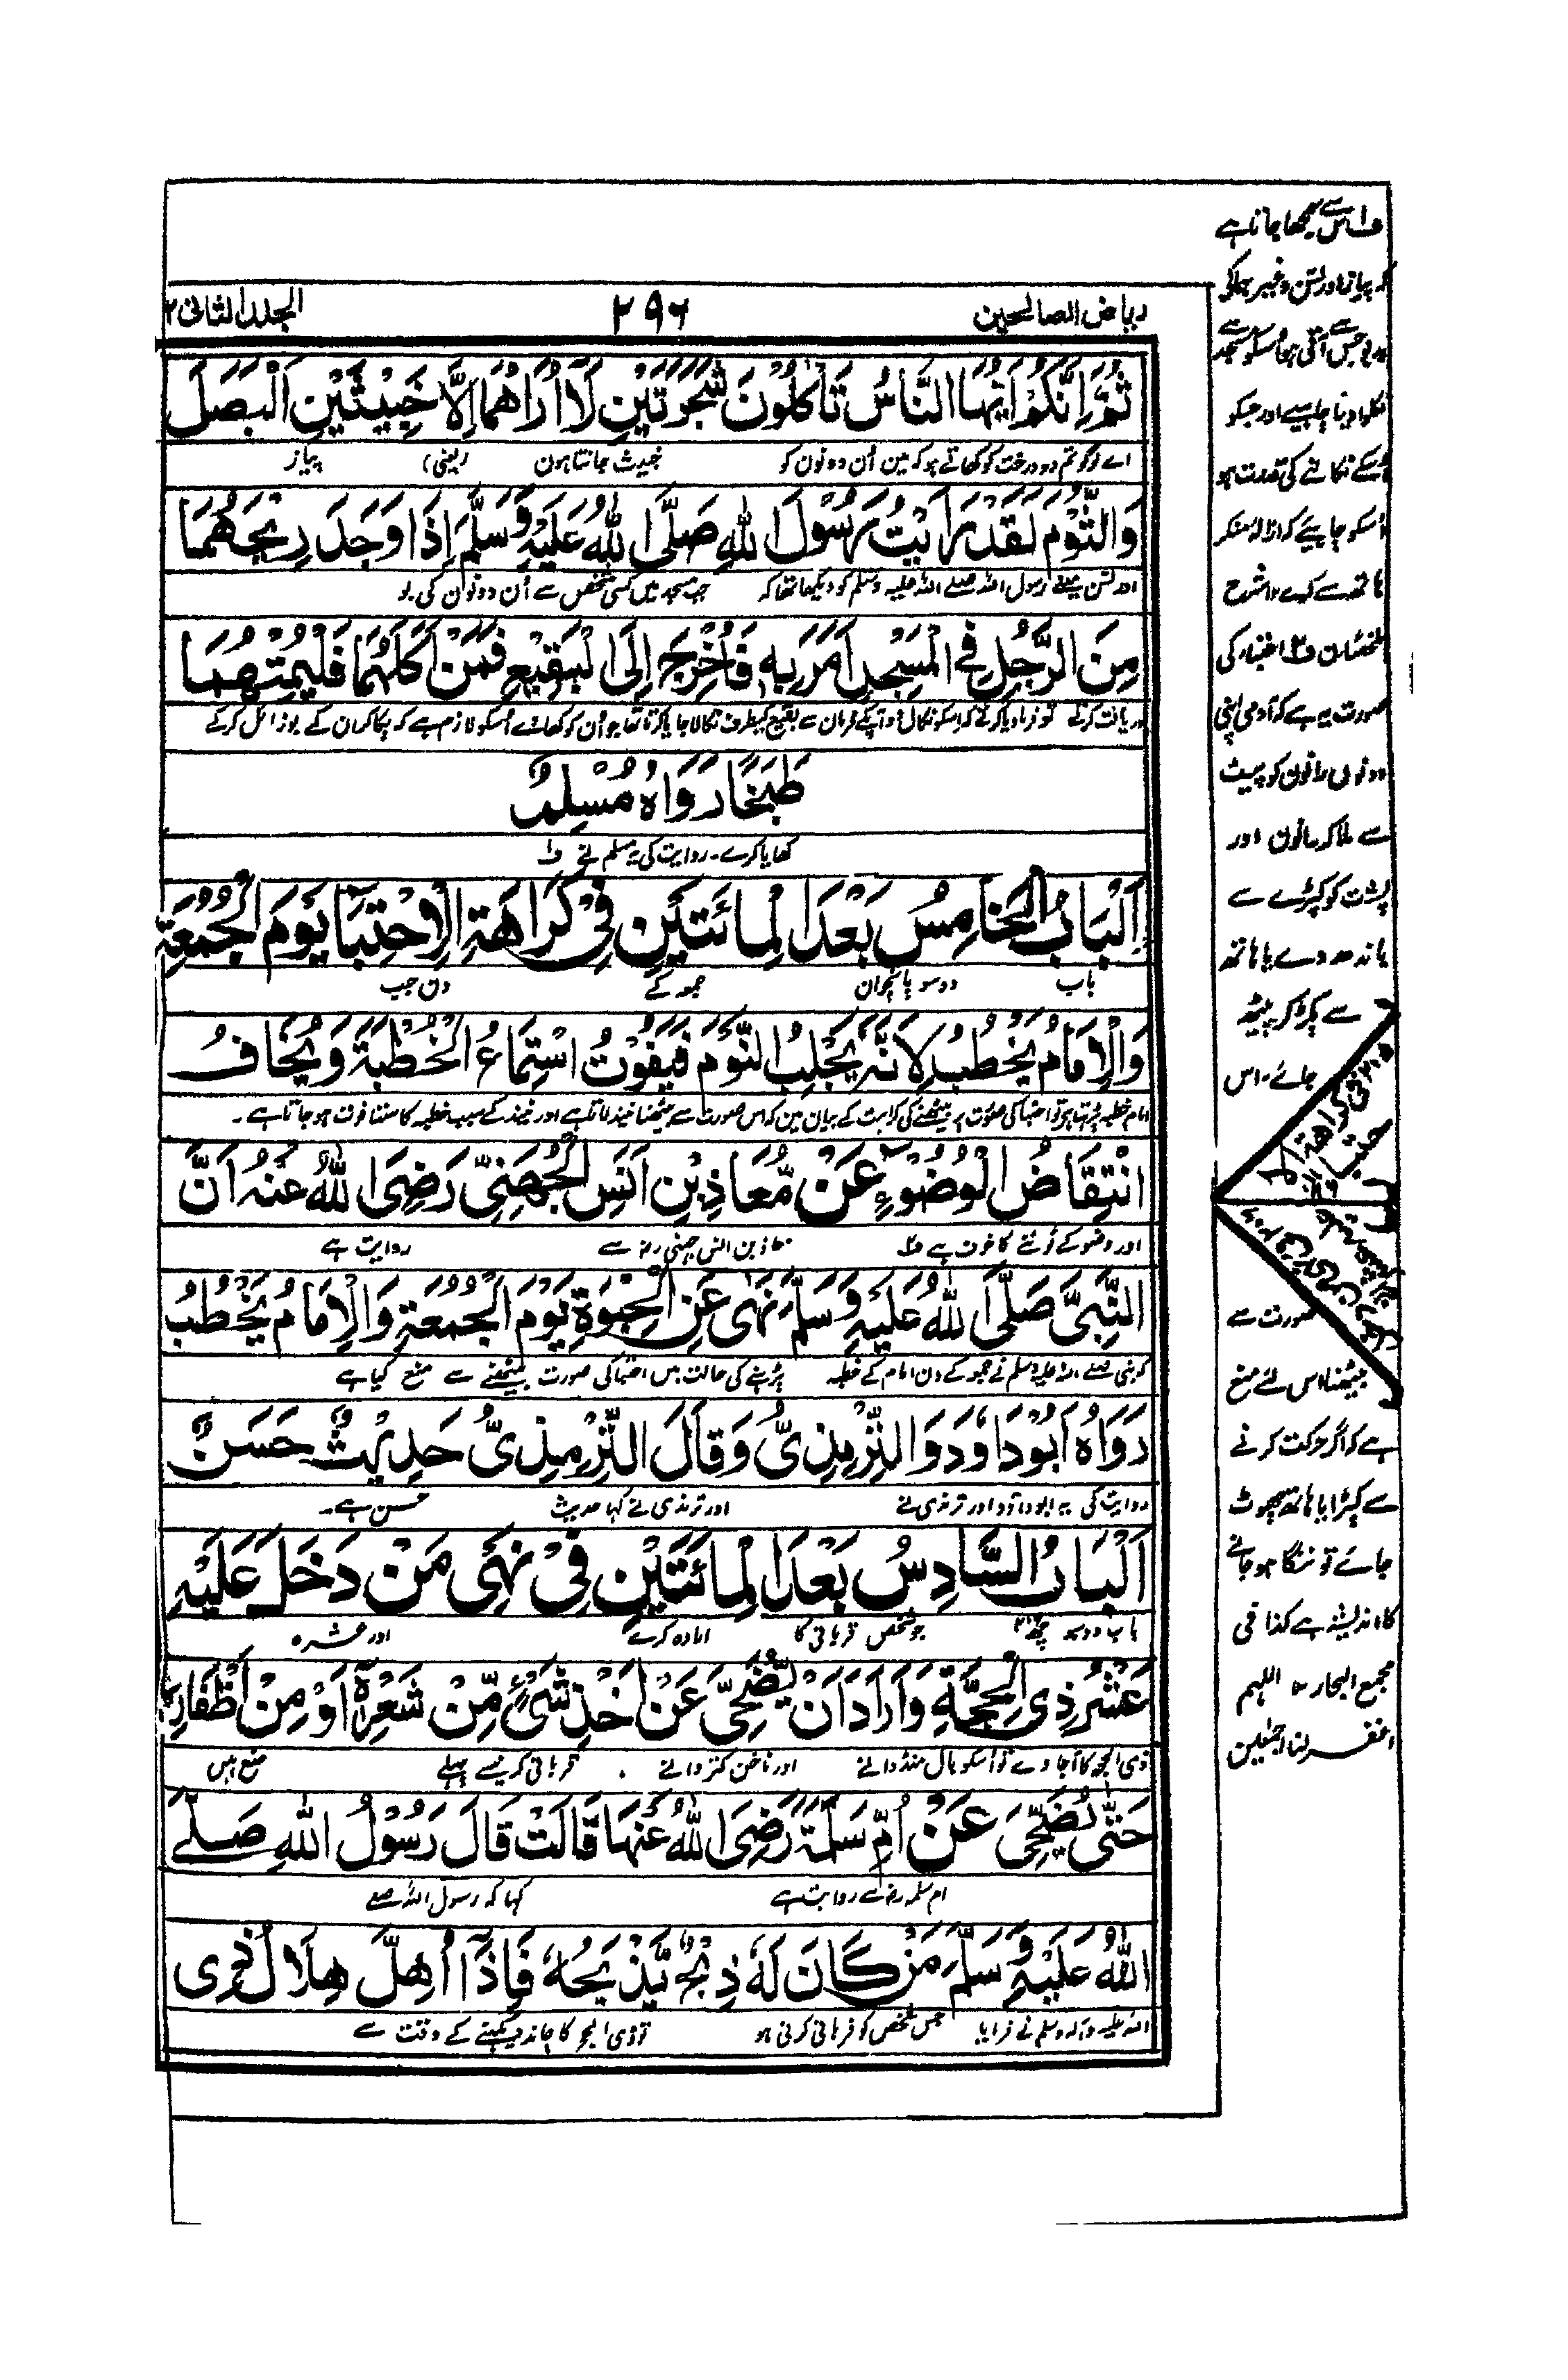 رياض الصالحين
٢٩٦
الجلد الثانى ٢
ثُمَّ اِنَّكُمْ اَيُّهَا النَّاسُ تَاْكُلُوْنَ شَجَرَتَيْنِ لَا اَرَاهُمَا اِلَّا خَبِيْثَتَيْنِ اَلْبَصَلَ
اے لوگو تم دو درخت کو کھاتے ہو کہ مین اُن دونون کو خبیث جانتا ہون (یعنی) پیاز
وَالثُّوْمَ لَقَدْ رَاَيْتُ رَسُوْلَ اللهِ صَلَّى اللهُ عَلَيْهِ وَسَلَّمَ اِذَا وَجَدَ رِيْحَهُمَا
اور لسن مینے رسول اللہ صلے اللہ علیہ وسلم کو دیکھا تھا کہ جب مسجد میں کسی شخص سے اُن دونون کی بو
مِنَ الرَّجُلِ فِي الْمَسْجِدِ اَمَرَ بِهٖ فَاُخْرِجَ اِلَى الْبَقِيْعِ فَمَنْ اَكَلَهُمَا فَلْيُمِتْهُمَا
دریافت کرتے تو فرمادیا کرتے کہ اسکو نکال دو آپکے فرمان سے بقیع کیطرف نکالا جایا کرتا تھا جو اُن کو کھائے اُسکو لازم ہے کہ پکا کر ان کے بو زائل کر کے
طَبْخًا رَوَاهُ مُسْلِمٌ
کھایا کرے۔ روایت کی یہ مسلم نے ف١
اَلْبَابُ الْخَامِسُ بَعْدَ الْمِائَتَيْنِ فِيْ كَرَاهَةِ الْاِحْتِبَآءِ يَوْمَ الْجُمُعَةِ
باب دو سو پانچوان جمعہ کے دن جب
وَالْاِمَامُ يَخْطُبُ لِاَنَّهُ يَجْلِبُ النَّوْمَ فَيَفُوْتُ اسْتِمَاعُ الْخُطْبَةِ وَيُخَافُ
امام خطبہ پڑہتا ہو تو احتبا کی صورت پر بیٹھنے کی کراہت کے بیان مین کہ اس صورت سے بیٹھنا نیند لاتا ہے اور نیند کے سبب خطبہ کا سننا فوت ہو جاتا ہے۔
انْتِقَاضُ الْوُضُوْءِ عَنْ مُّعَاذِ بْنِ اَنَسِ الْجُهَنِيِّ رَضِيَ اللهُ عَنْهُ اَنَّ
اور وضو کے ٹوٹنے کا خوف ہے ف٢ معاذ بن انس جہنی رض سے روایت ہے
النَّبِيَّ صَلَّى اللهُ عَلَيْهِ وَسَلَّمَ نَهٰى عَنِ الْحِبْوَةِ يَوْمَ الْجُمُعَةِ وَالْاِمَامُ يَخْطُبُ
کہ نبی صلے اللہ علیہ وسلم نے جمعہ کے دن امام کے خطبہ پڑہنے کی حالت میں احتبا کی صورت بیٹھنے سے منع کیا ہے
رَوَاهُ اَبُوْ دَاوٗدَ وَالتِّرْمِذِيُّ وَقَالَ التِّرْمِذِيُّ حَدِيْثٌ حَسَنٌ
روایت کی یہ ابو داؤد اور ترمذی نے اور ترمذی نے کہا حدیث حسن ہے۔
اَلْبَابُ السَّادِسُ بَعْدَ الْمِائَتَيْنِ فِيْ نَهْيِ مَنْ دَخَلَ عَلَيْهِ
باب دو سو چھٹا جو شخص قربانی کا ارادہ کرے اور عشرہ
عَشْرُ ذِي الْحِجَّةِ وَاَرَادَ اَنْ يُّضَحِّيَ عَنْ اَخْذِ شَيْءٍ مِّنْ شَعْرِهٖ اَوْ مِنْ اَظْفَارِهٖ
ذی الحجہ کا آجاوے تو اُسکو بال منڈوانے اور ناخن کتروانے قربانی کرنیسے پہلے منع ہیں
حَتّٰى يُضَحِّيَ عَنْ اُمِّ سَلَمَةَ رَضِيَ اللهُ عَنْهَا قَالَتْ قَالَ رَسُوْلُ اللهِ صَلَّى
ام سلمہ رض سے روایت ہے کہا کہ رسول اللہ صلے
اللهُ عَلَيْهِ وَسَلَّمَ مَنْ كَانَ لَهٗ ذِبْحٌ يَّذْبَحُهٗ فَاِذَا اُهِلَّ هِلَالُ ذِى
اللہ علیہ وآلہ وسلم نے فرمایا جس شخص کو قربانی کرنی ہو تو ذی الحجہ کا چاند دیکھنے کے وقت سے
ف١ اس سے سمجھا جاتا ہے
کہ پیاز اور لسن وغیرہما کی
بو جس سے آتی ہو اُسکو مسجد سے
نکلوا دینا چاہیے اور جسکو
اُسکے نکالنے کی قدرت ہو
اُسکو چاہیے کہ ازالہ منکر
ہاتھ سے کرے ١٢ شرح
ف٢ احتباء کی
صورت یہ ہے کہ آدمی اپنی
دونوں رانون کو پیٹ
سے ملا کر رانون اور
پشت کو کپڑے سے
باندھ دے یا ہاتھ
سے پکڑ کر بیٹھ
جائے۔ اس
صورت سے
بیٹھنا اس لئے منع
ہے کہ اگر حرکت کرنے
سے کپڑا یا ہاتھ چھوٹ
جائے تو ننگا ہو جانے
کا اندیشہ ہے کذا فی
مجمع البحار ١٢ اللہم
اغفر لنا اجمعین